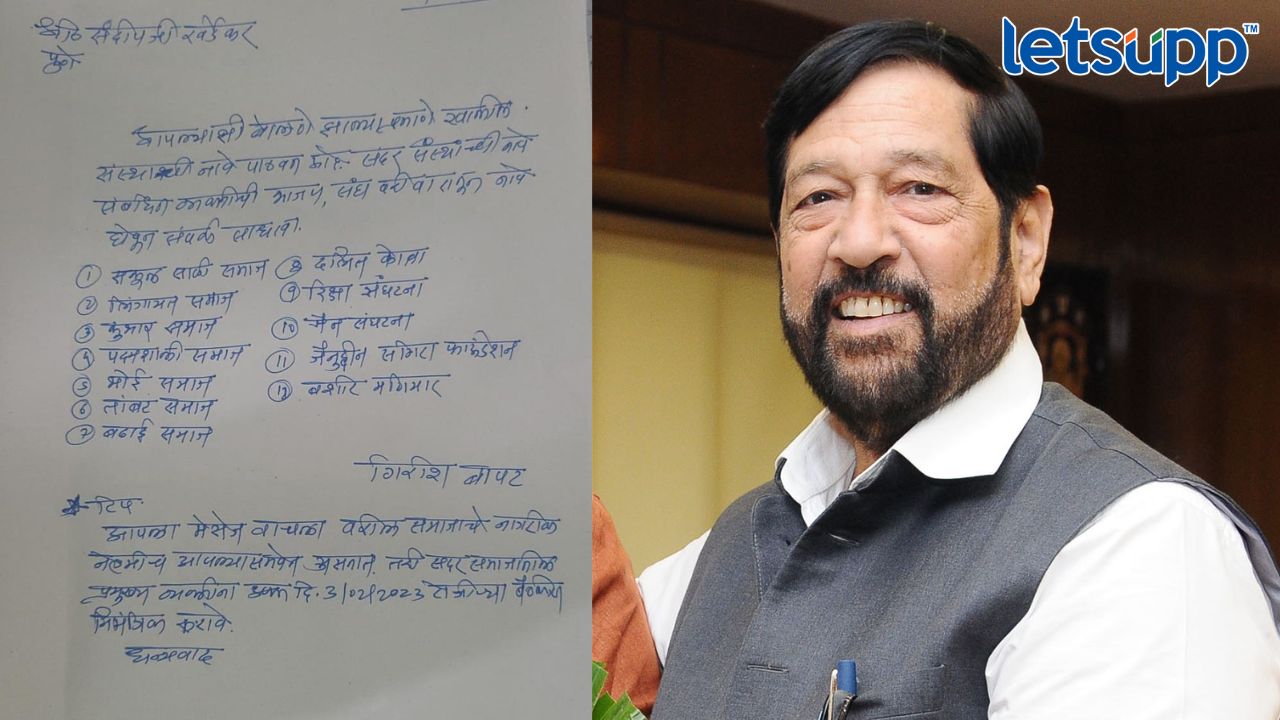 प्रति संदीपजी खर्डेकर
पुणे
आपल्याशी बोलणे झाल्याप्रमाणे खालील
संस्थाची नावे पाठवत आहे. सदर संस्थांची नावे
संबंधित व्यक्तींची भाजप, संघ परिवारातून नावे
घेऊन संपर्क साधावा.
① सकल माळी समाज
② लिंगायत समाज
③ कुंभार समाज
④ पद्मशाली समाज
⑤ भोई समाज
⑥ तांबट समाज
⑦ बढाई समाज
⑧ दलित
⑨ रिक्षा संघटना
⑩ जैन संघटना
⑪ जैनुद्दीन फाऊंडेशन
⑫ बशीर मणियार
गिरीश बापट
टिप
आपला मेसेज वाचला वरील समाजाचे नागरिक
नेहमीच आपल्यासमवेत असतात. तरी सदर समाजातील
प्रमुख व्यक्तींना दि. 3/02/2023 रोजीच्या बैठकीस
निमंत्रित करावे.
धन्यवाद
letsupp™